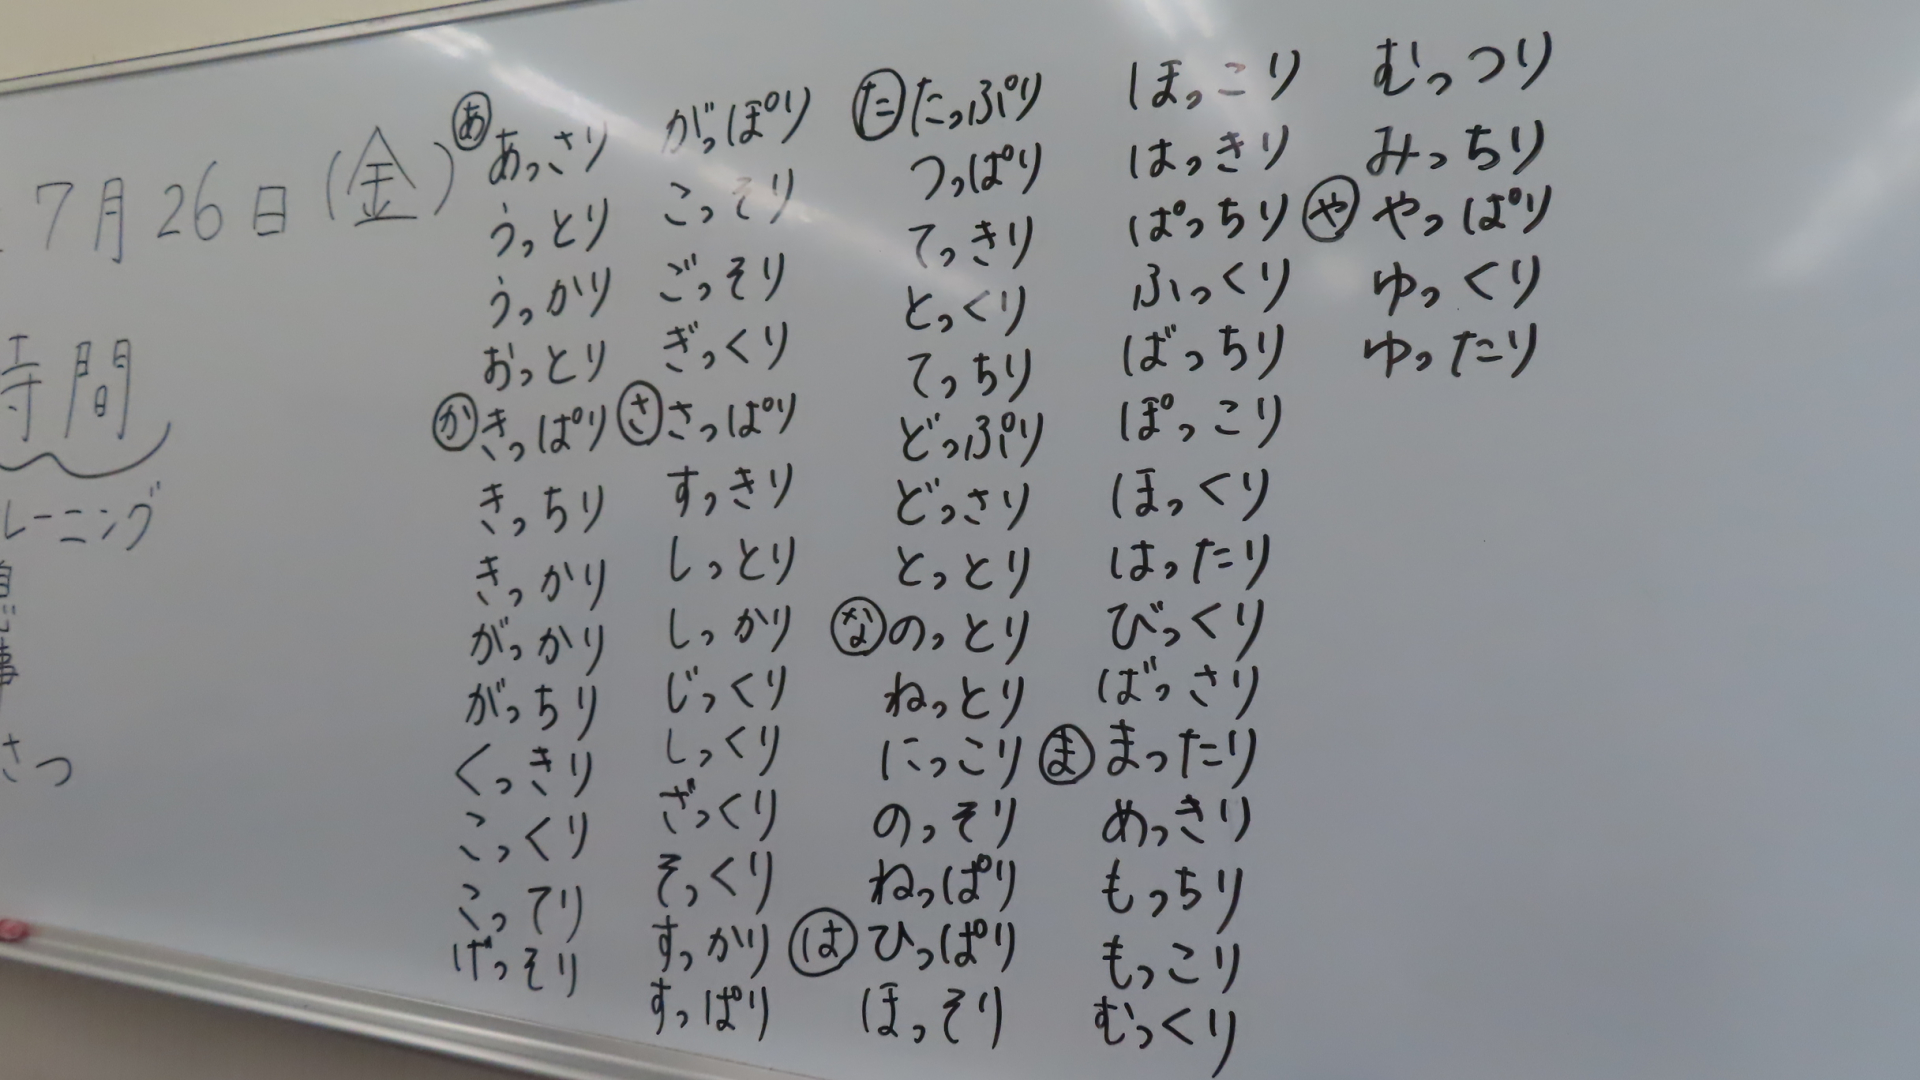 7月26日(金)
時間
レーニング
事
さつ
あ あっさり
うっとり
うっかり
おっとり
か きっぱり
きっちり
きっかり
がっかり
がっちり
くっきり
こっくり
こってり
げっそり
がっぽり
こっそり
ごっそり
ぎっくり
さ さっぱり
すっきり
しっとり
しっかり
じっくり
しっくり
ざっくり
そっくり
すっかり
すっぱり
た たっぷり
つっぱり
てっきり
とっくり
てっちり
どっぷり
どっさり
とっとり
な のっとり
ねっとり
にっこり
のっそり
ねっぱり
は ひっぱり
ほっそり
ほっこり
はっきり
ぱっちり
ふっくり
ばっちり
ぽっこり
ほっくり
はったり
びっくり
ばっさり
ま まったり
めっきり
もっちり
もっこり
むっくり
むっつり
みっちり
や やっぱり
ゆっくり
ゆったり